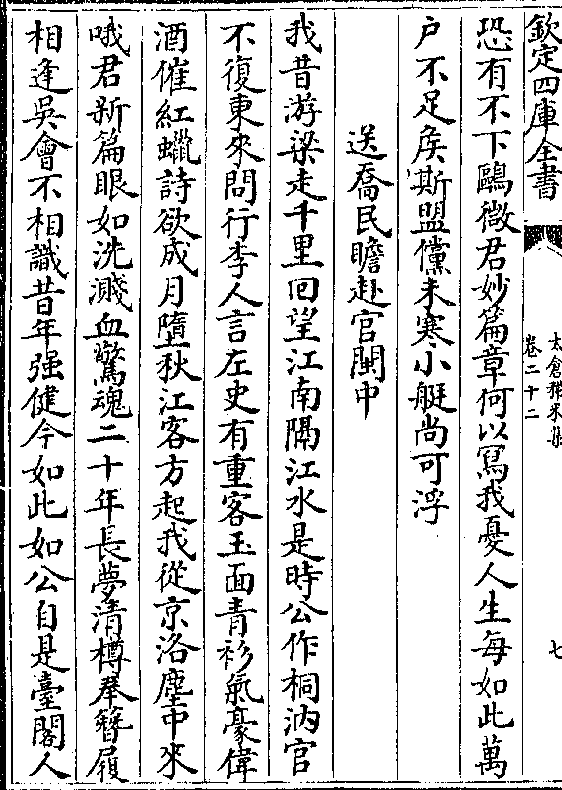 欽定四庫全書
太倉稊米集
卷二十二
七
恐有不下鷗微君妙篇章何以冩我憂人生每如此萬
户不足矦斯盟儻未寒小艇尚可浮
送喬民瞻赴官閩中
我昔游梁走千里回望江南隔江水是時公作桐汭官
不復東來問行李人言左史有重客玉面青衫氣豪偉
酒催紅蠟詩欲成月墮秋江客方起我從京洛塵中來
哦君新篇眼如洗濺血驚魂二十年長夢清樽羣簪履
相逢吳會不相識昔年强健今如此如公自是臺閣人